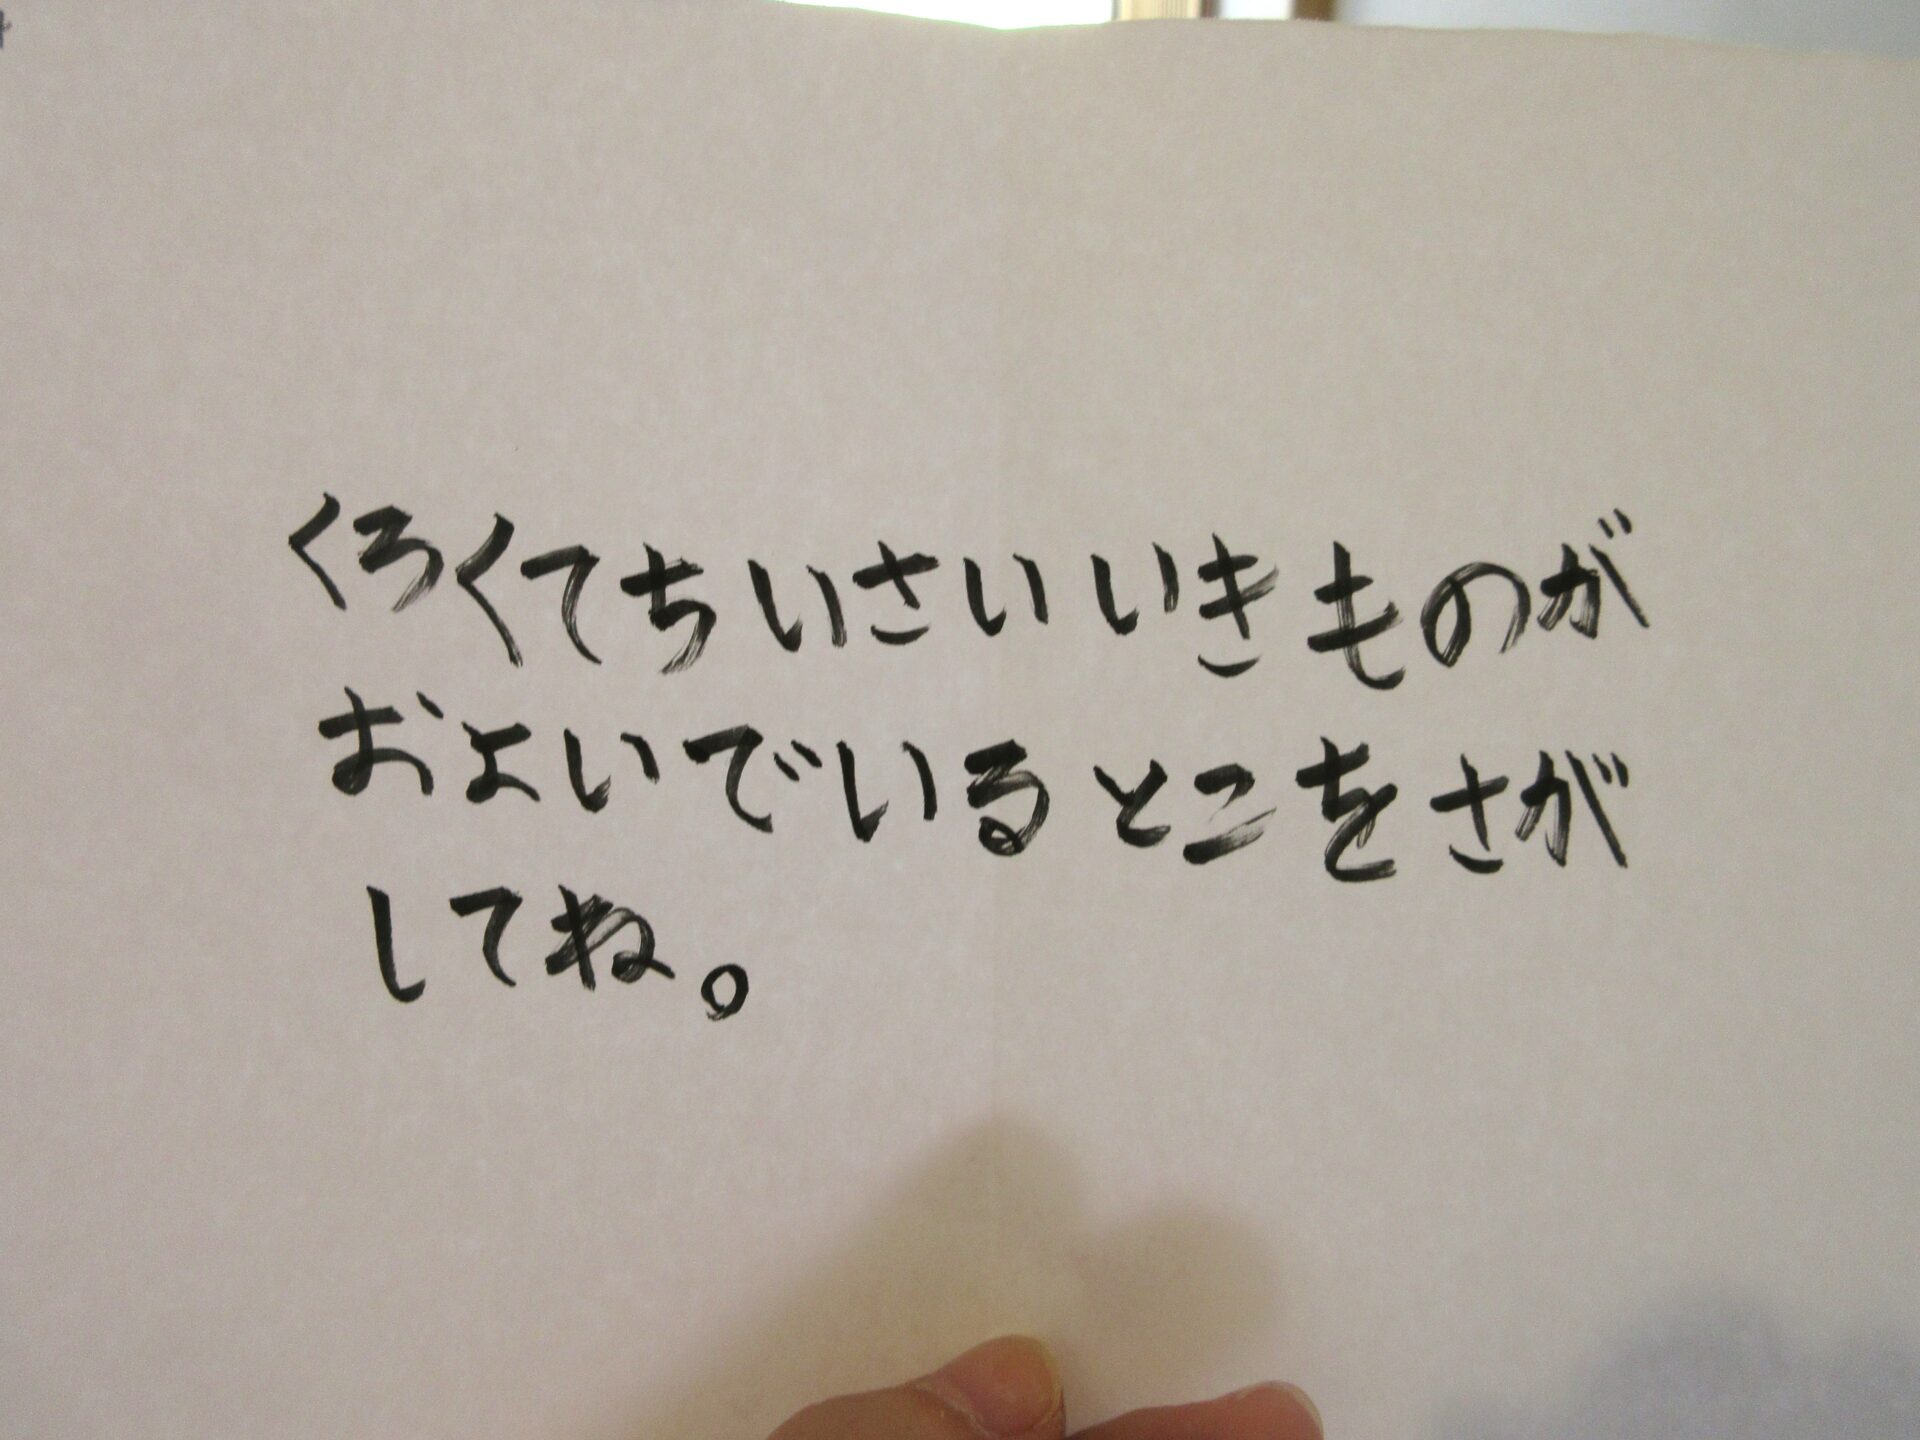 くろくてちいさいいきものが
およいでいるとこをさが
してね。